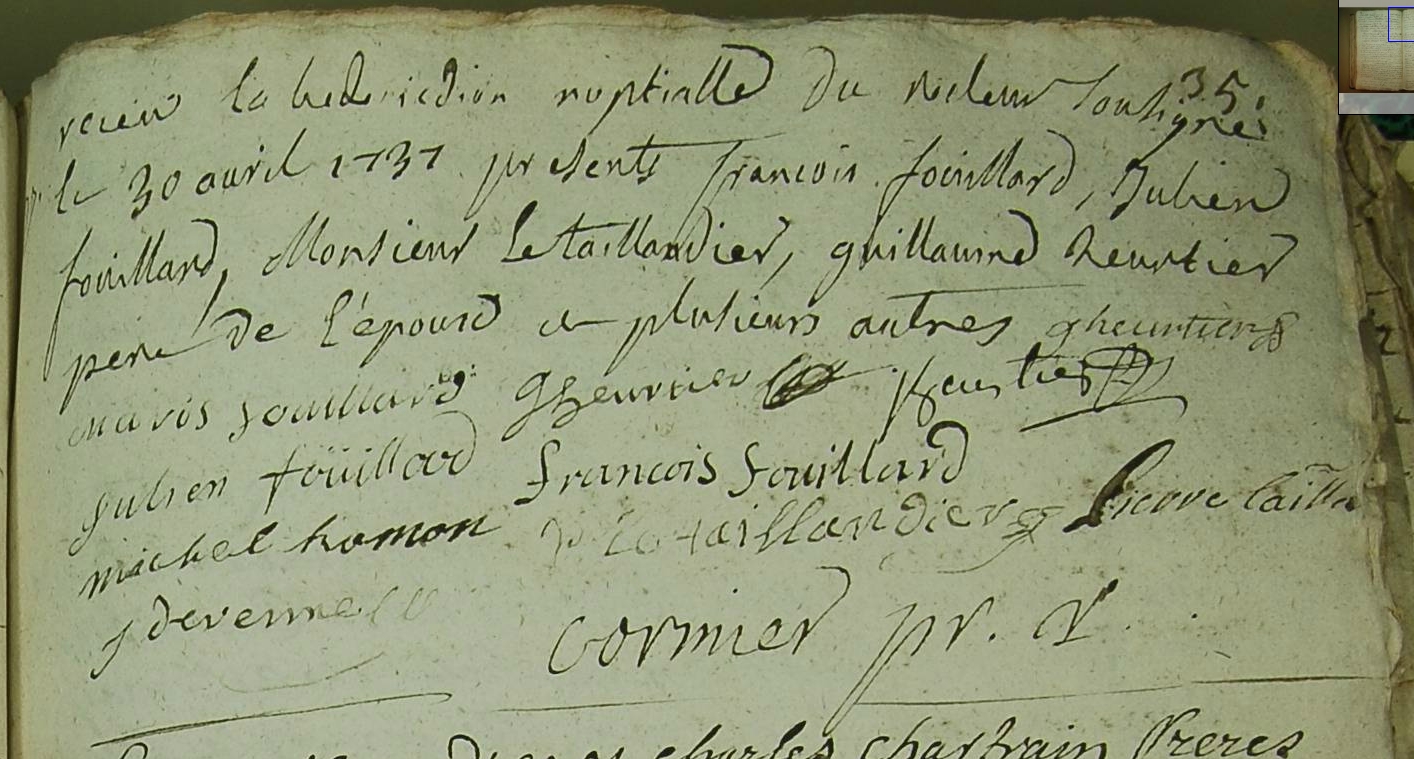 35
receu la benediction nuptialle du recteur soussigné
le 30 avril 1737 presents francois fouillard, Julien
fouillard, Monsieur Letaillandier, guillaume heurtier
pere de l'épouse et plusieurs autres gheurtier
maris fouillard G heurtier heurtier
Julien foüillard francois fouillard
michel hamon Letaillandier pierre tailla
J
cormier pr. R.
charles chartrain freres